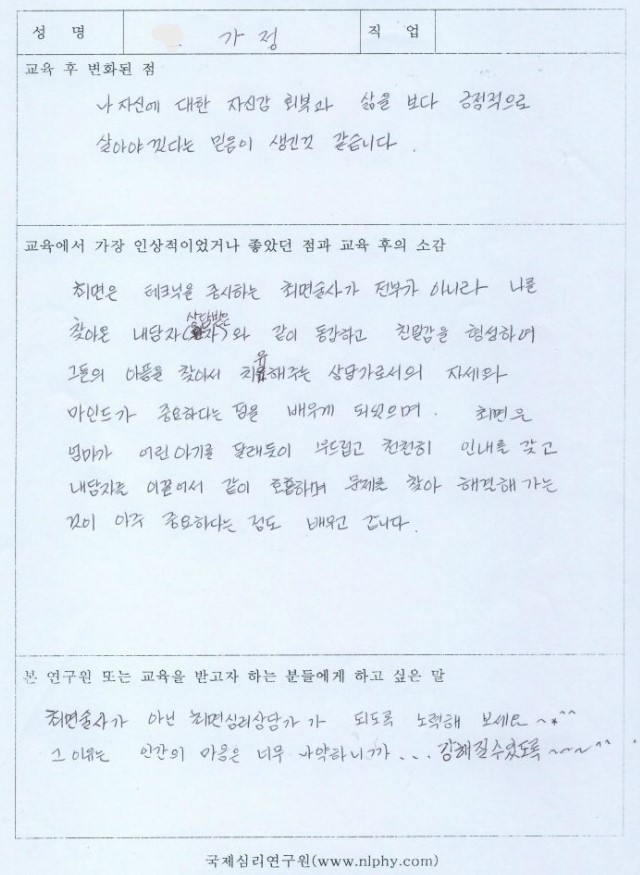 성 명 가정 직 업
교육 후 변화된 점
나 자신에 대한 자신감 회복과 삶을 보다 긍정적으로
살아야 겠다는 믿음이 생긴것 같습니다.
교육에서 가장 인상적이었거나 좋았던 점과 교육 후의 소감
최면은 테크닉을 중시하는 최면술사가 전부가 아니라 나를
찾아온 내담자(상담받은자)와 같이 동감하고 친밀감을 형성하여
그들의 아픔을 찾아서 치유해주는 상담가로서의 자세와
마인드가 중요하다는 점을 배우게 되었으며. 최면은
엄마가 어린아기를 달래듯이 부드럽고 천천히 인내를 갖고
내담자를 이끌어서 같이 호흡하며 문제를 찾아 해결해 가는
것이 아주 중요하다는 점도 배우고 갑니다.
본 연구원 또는 교육을 받고자 하는 분들에게 하고 싶은 말
최면술사가 아닌 최면심리상담가 가 되도록 노력해 보세요~*^^
그 이유는 인간의 마음은 너무 나약하니까... 강해질수있도록~~~^^
국제심리연구원(www.nlphy.com)